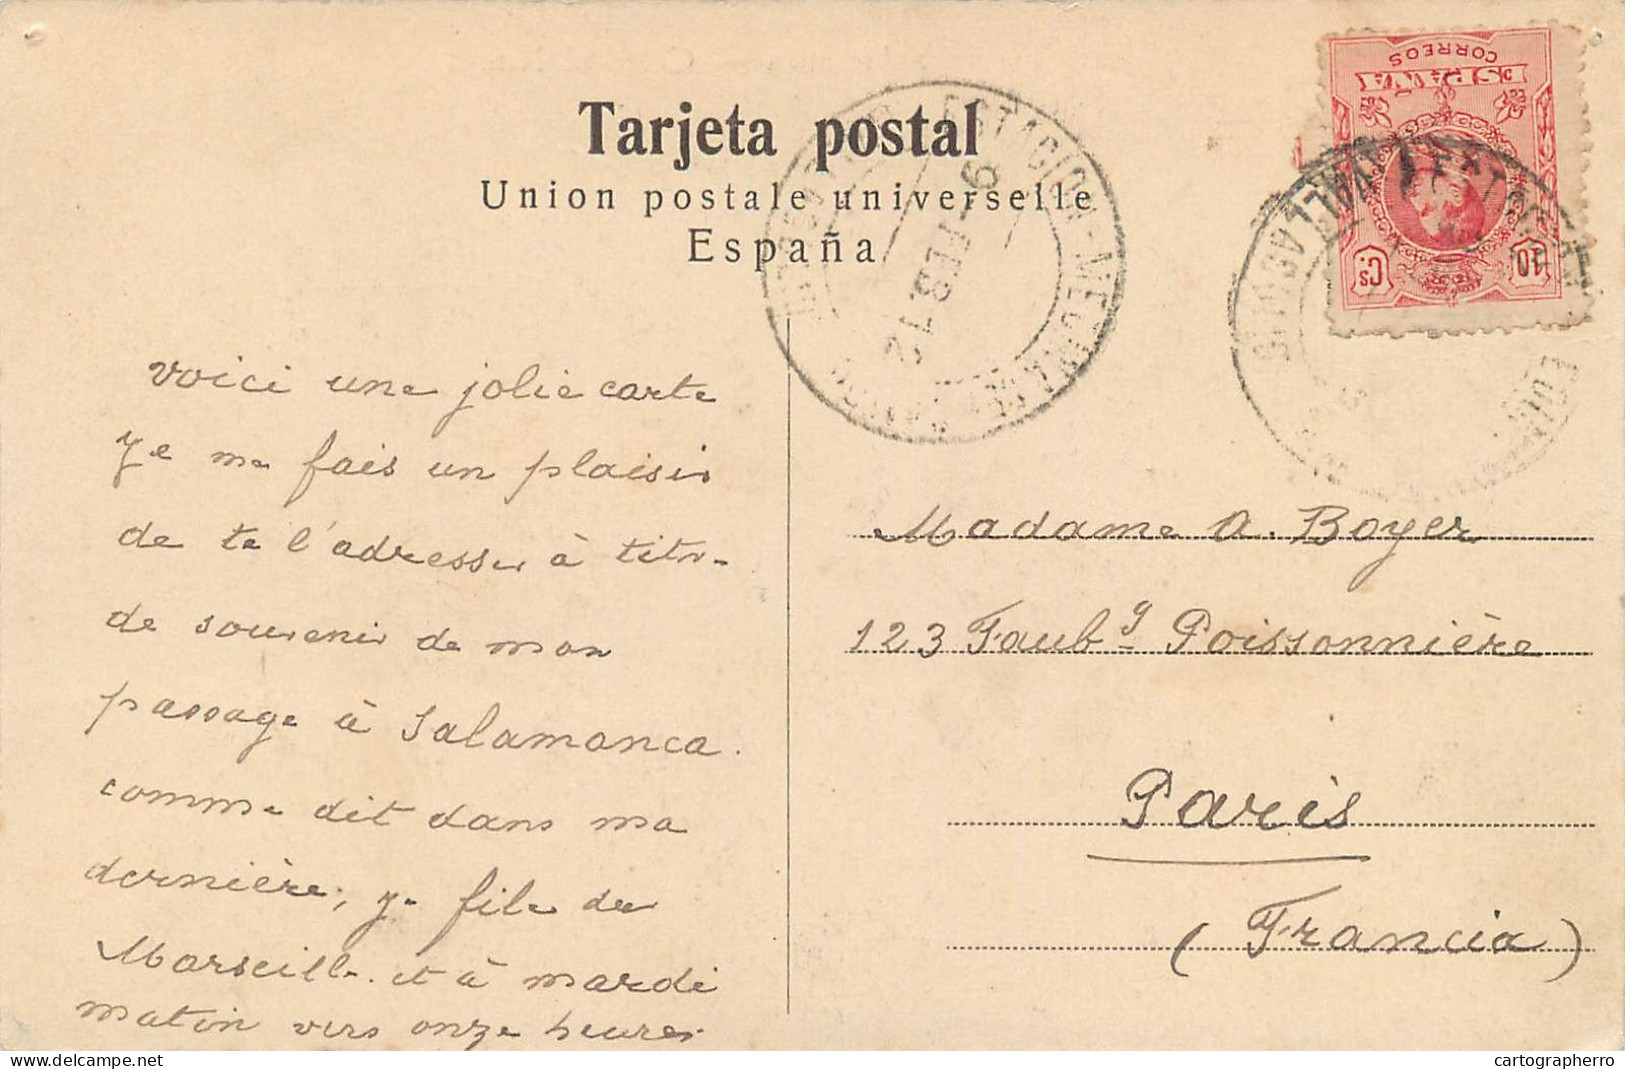 Tarjeta postal
Union postale universelle
España
CORREOS
ESPAÑA
10 Cs
ESTACION-MEDINA
9-FEB 12
voici une jolie carte
ye me fais un plaisir
de te l'adresser à titre
de souvenir de mon
passage à Salamanca.
comme dit dans ma
dernière, ye file de
Marseille et à mardi
matin vers onze heures.
Madame A. Boyer
123 Faubg Poissonnière
Paris
(Francia)
cartographerro